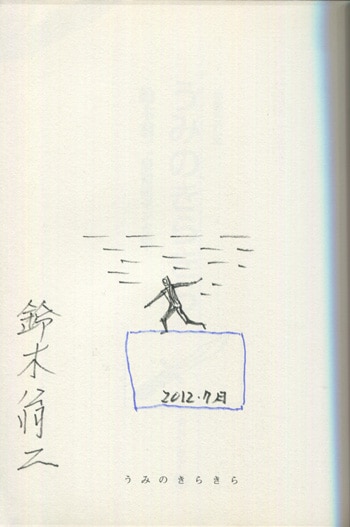 鈴木翁二
2012.7月
うみのきらきら